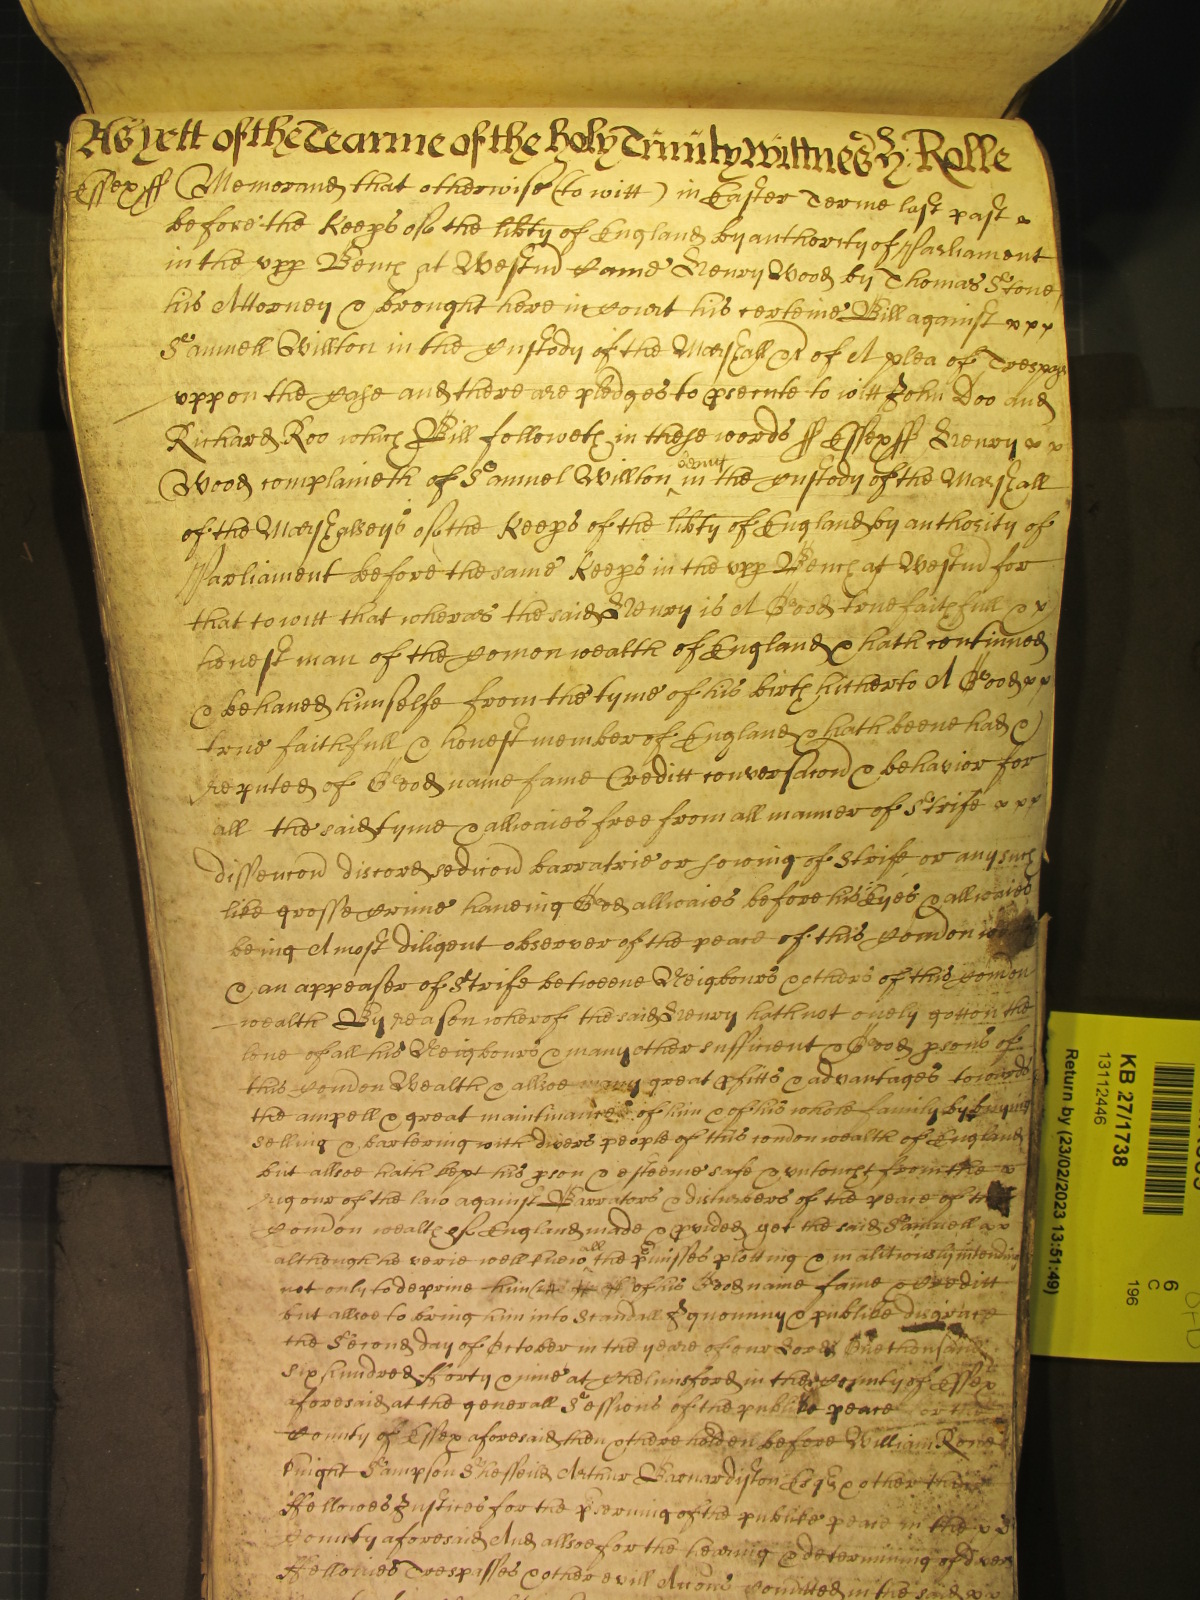 As yett of the Tearme of the holy Trinity Wittnes Ry: Rolle
Essex ss Memorand that otherwise (to witt) in Easter Terme last past
before the Keeps of the libty of England by authority of Parliament
in the upp Bench at Westm Came Henry Wood by Thomas Stone
his Attorney & brought here in Court his certeine Bill against
Samuell Willton in the Custody of the Marshall &c of A plea of Trespas
uppon the Case and there are pledges to psecute to witt John Doo and
Richard Roo which Bill followeth in these words ss Essex ss Henry
Wood complaineth of Samuel Willton being in the Custody of the Marshall
of the Marshalseys of the Keeps of the libty of England by authority of
Parliament before the same Keeps in the upp Bench at Westm for
that to witt that wheras the said Henry is A Good true faithfull &
honest man of the Comon wealth of England & hath continued
& behaved himselfe from the tyme of his birth hitherto A Good
true faithfull & honest member of England & hath beene had &
reputed of Good name fame Creditt conversacon & behavior for
all the said tyme & allwaies free from all manner of Strife
dissencon discord sedicon barratrie or sowing of Strife or any such
like grosse Crime haveing God allwaies before his Eyes & allwaies
being A most diligent observer of the peace of this Comon
& an appeaser of Strife betweene Neigbours & others of this Comon
wealth By reason wherof the said Henry hath not onely gotten the
love of all his Neigbours & many other sufficient & Good psons of
this Comon Wealth & allsoe many great pfitts & advantages towards
the ampell & great maintinances of him & of his whole family by buying
selling & bartering with divers people of this comon wealth of England
but allsoe hath kept his pson & esteeme safe & untoucht from the
rigour of the law against Barrators & disturbers of the peace of the
Comon wealth of England made & pvided yet the said Samuell
although he verie well knew all the pmisses plotting & malitiously intending
not only to deprive him of his Good name fame & Creditt
but allsoe to bring him into Scandall Ignominy & publike disgrace
the Second day of October in the yeare of our Lord One thousand
six hundred Forty & nine at Chelmsford in the County of Essex
aforesaid at the generall Sessions of the publike peace for the
County of Essex aforesaid then & there holden before William Rowe
knight Sampson Sheffeild Arthur Barnardiston Esqs & other their
Fellowes Justices for the pserving of the publike peace in the
County aforesaid And allsoe for the hearing & determining of divers
Fellonies Trespasses & other evill Accons comitted in the said
KB 27/1738
13112446
Return by (23/02/2023 13:51:49)
6
C
196